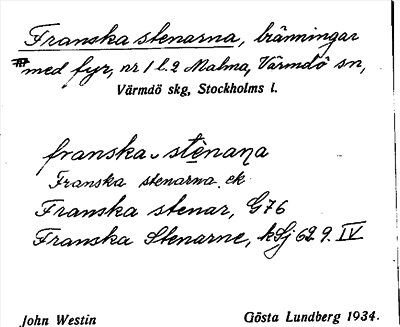 Franska stenarna, bränningar
med fyr, nr 1 l. 2 Malma, Värmdö sn,
Värmdö skg, Stockholms l.
franska stènaṇa
Franska stenarna ek
Franska stenar, G76
Franska Stenarne, kSj 62 9. IV
John Westin Gösta Lundberg 1934.